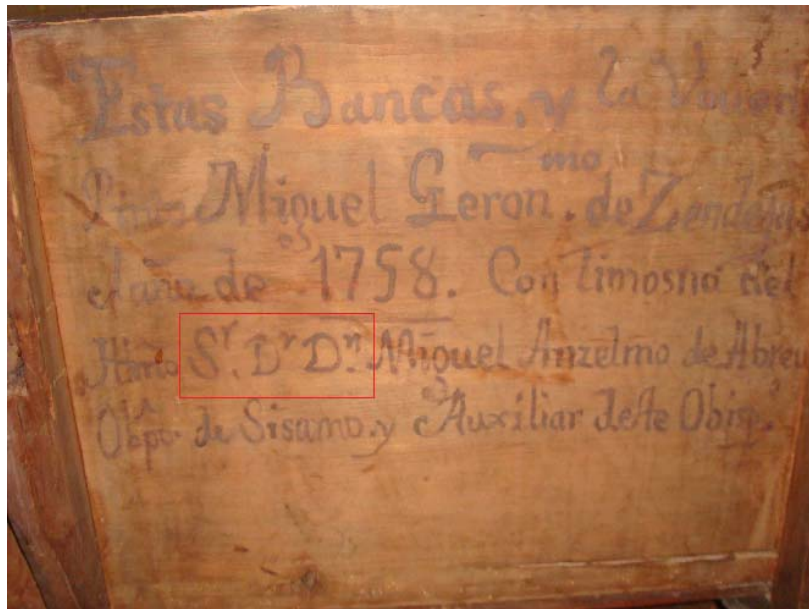 Estas Bancas, y la
Pinto Miguel Geron.mo de Zendejas
el año de 1758. Con limosna del
Illmo Sr. Dr Dn. Miguel Anzelmo de Abreu
Obpo. de Sisamo, y Auxiliar deste Obisp.o